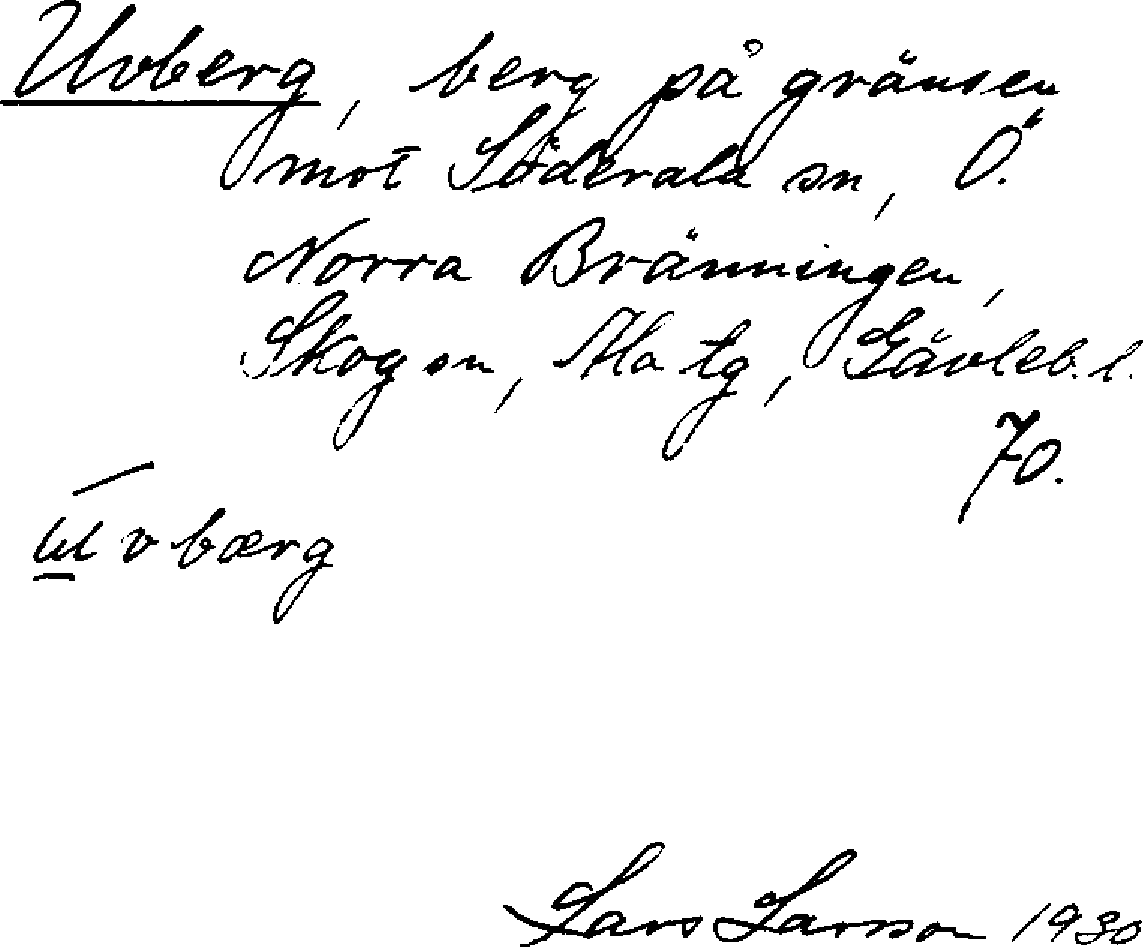 Uvberg, berg på gränsen
mot Söderala sn, Ö.
Norra Bränningen,
Skog sn, Ala tg, Gävleb. l.
70.
uvbærg
Lars Larsson 1930